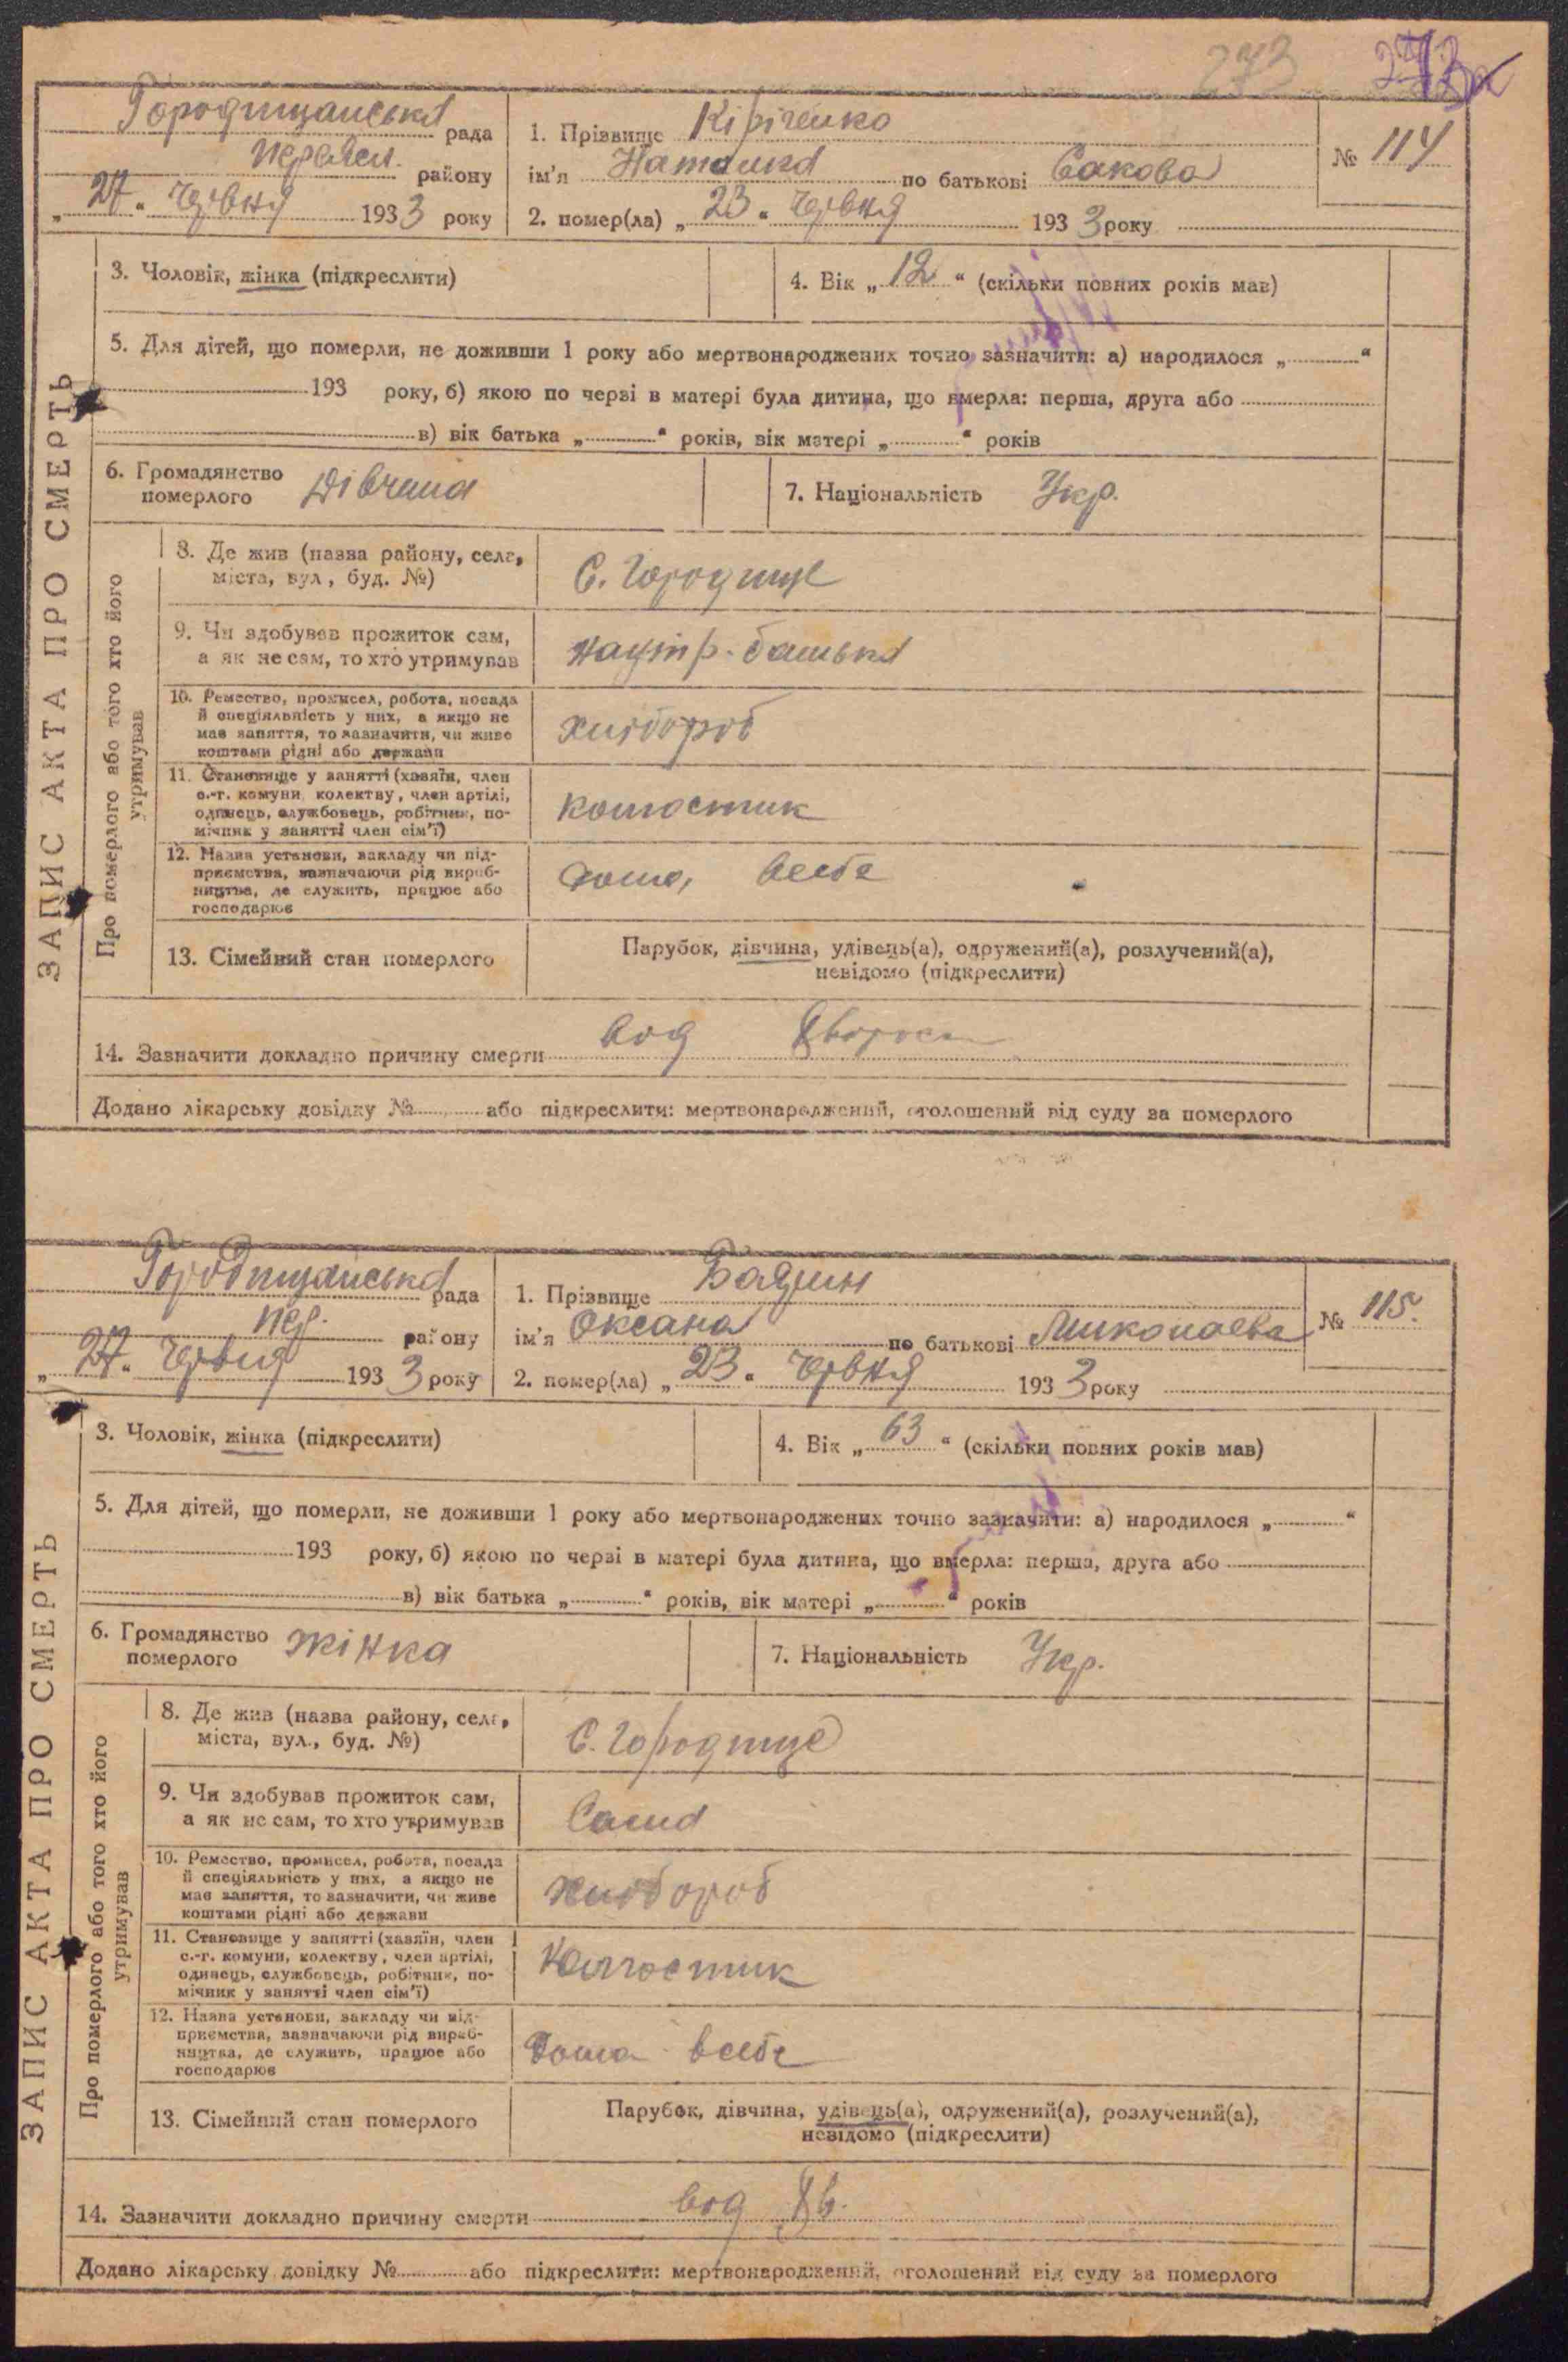 273
Городищанська рада
Переясл. району
„27“ Червня 1933 року
1. Прізвище Кіріченко
ім'я Наталка по батькові Сакова
2. помер(ла) „23“ Червня 1933 року
№ 114
ЗАПИС АКТА ПРО СМЕРТЬ
3. Чоловік, жінка (підкреслити)
4. Вік „12“ (скільки повних років мав)
5. Для дітей, що померли, не доживши 1 року або мертвонароджених точно зазначити: а) народилося „ “
193 року, б) якою по черзі в матері була дитина, що вмерла: перша, друга або
в) вік батька „ “ років, вік матері „ “ років
6. Громадянство
померлого Дівчина
7. Національність Укр.
Про померлого або того хто його
утримував
8. Де жив (назва району, села,
міста, вул., буд. №)
С. Городище
9. Чи здобував прожиток сам,
а як не сам, то хто утримував
батька
10. Ремество, промисел, робота, посада
й спеціяльність у них, а якщо не
мав заняття, то зазначити, чи живе
коштами рідні або держави
хлібороб
11. Становище у занятті (хазяїн, член
с.-г. комуни, колектву, член артілі,
одинець, службовець, робітник, по-
мічник у занятті член сім'ї)
12. Назва установи, закладу чи під-
приємства, зазначаючи рід вироб-
ництва, де служить, працює або
господарює
дома, всебе
13. Сімейний стан померлого
Парубок, дівчина, удівець(а), одружений(а), розлучений(а),
невідомо (підкреслити)
14. Зазначити докладно причину смерти вод
Додано лікарську довідку № або підкреслити: мертвонароджений, оголошений від суду за померлого
Городищанська рада
Пер. району
„27“ Червня 1933 року
1. Прізвище Бадин
ім'я Оксана по батькові Миколаева
2. помер(ла) „23“ Червня 1933 року
№ 115.
ЗАПИС АКТА ПРО СМЕРТЬ
3. Чоловік, жінка (підкреслити)
4. Вік „63“ (скільки повних років мав)
5. Для дітей, що померли, не доживши 1 року або мертвонароджених точно зазначити: а) народилося „ “
193 року, б) якою по черзі в матері була дитина, що вмерла: перша, друга або
в) вік батька „ “ років, вік матері „ “ років
6. Громадянство
померлого жінка
7. Національність Укр.
Про померлого або того хто його
утримував
8. Де жив (назва району, села,
міста, вул., буд. №)
С. Городище
9. Чи здобував прожиток сам,
а як не сам, то хто утримував
Сама
10. Ремество, промисел, робота, посада
й спеціяльність у них, а якщо не
мав заняття, то зазначити, чи живе
коштами рідні або держави
хлібороб
11. Становище у занятті (хазяїн, член
с.-г. комуни, колектву, член артілі,
одинець, службовець, робітник, по-
мічник у занятті член сім'ї)
12. Назва установи, закладу чи під-
приємства, зазначаючи рід вироб-
ництва, де служить, працює або
господарює
дома всебе
13. Сімейний стан померлого
Парубок, дівчина, удівець(а), одружений(а), розлучений(а),
невідомо (підкреслити)
14. Зазначити докладно причину смерти вод
Додано лікарську довідку № або підкреслити: мертвонароджений, оголошений від суду за померлого